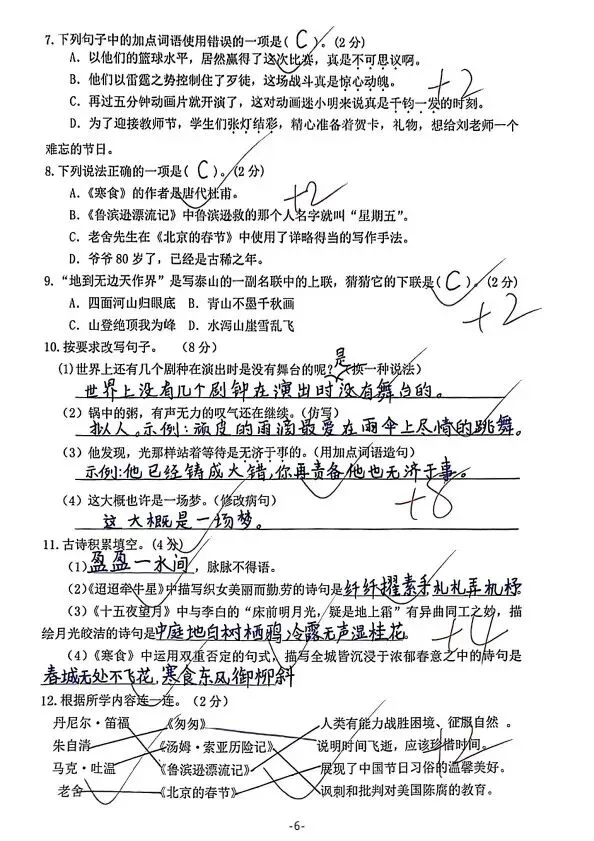 7. 下列句子中的加点词语使用错误的一项是( C )。(2 分)
A. 以他们的篮球水平，居然赢得了这次比赛，真是不可思议啊。
B. 他们以雷霆之势控制住了歹徒，这场战斗真是惊心动魄。
+2
C. 再过五分钟动画片就开演了，这对动画迷小明来说真是千钧一发的时刻。
D. 为了迎接教师节，学生们张灯结彩，精心准备着贺卡，礼物，想给刘老师一个
难忘的节日。
8. 下列说法正确的一项是( C )。(2 分)
A.《寒食》的作者是唐代杜甫。
+2
B.《鲁滨逊漂流记》中鲁滨逊救的那个人名字就叫“星期五”。
C. 老舍先生在《北京的春节》中使用了详略得当的写作手法。
D. 爷爷 80 岁了，已经是古稀之年。
9. “地到无边天作界”是写泰山的一副名联中的上联，猜猜它的下联是( C )。(2 分)
A. 四面河山归眼底 B. 青山不墨千秋画
+2
C. 山登绝顶我为峰 D. 水泻山崖雪乱飞
10. 按要求改写句子。 (8 分)
(1)世界上还有几个剧种在演出时是没有舞台的呢?(换一种说法)
是
世界上没有几个剧钟在演出时没有舞台的。
(2) 锅中的粥，有声无力的叹气还在继续。(仿写)
拟人。示例:顽皮的雨滴最爱在雨伞上尽情的跳舞。
(3) 他发现，光那样站着等待是无济于事的。(用加点词语造句)
示例:他已经铸成大错,你再责备他也无济于事。
(4) 这大概也许是一场梦。(修改病句)
+8
这大概是一场梦。
11. 古诗积累填空。(4 分)
(1) 盈盈一水间 ，脉脉不得语。
(2)《迢迢牵牛星》中描写织女美丽而勤劳的诗句是纤纤擢素手札札弄机杼
(3)《十五夜望月》中与李白的“床前明月光，疑是地上霜”有异曲同工之妙，描
绘月光皎洁的诗句是中庭地白树栖鸦,冷露无声湿桂花。
+4
(4)《寒食》中运用双重否定的句式，描写全城皆沉浸于浓郁春意之中的诗句是
春城无处不飞花,寒食东风御柳斜
12. 根据所学内容连一连。(2 分)
丹尼尔·笛福 《匆匆》 人类有能力战胜困境、征服自然 。
朱自清 《汤姆·索亚历险记》 说明时间飞逝，应该珍惜时间。
+2
马克·吐温 《鲁滨逊漂流记》 展现了中国节日习俗的温馨美好。
老舍 《北京的春节》 讽刺和批判对美国陈腐的教育。
-6-